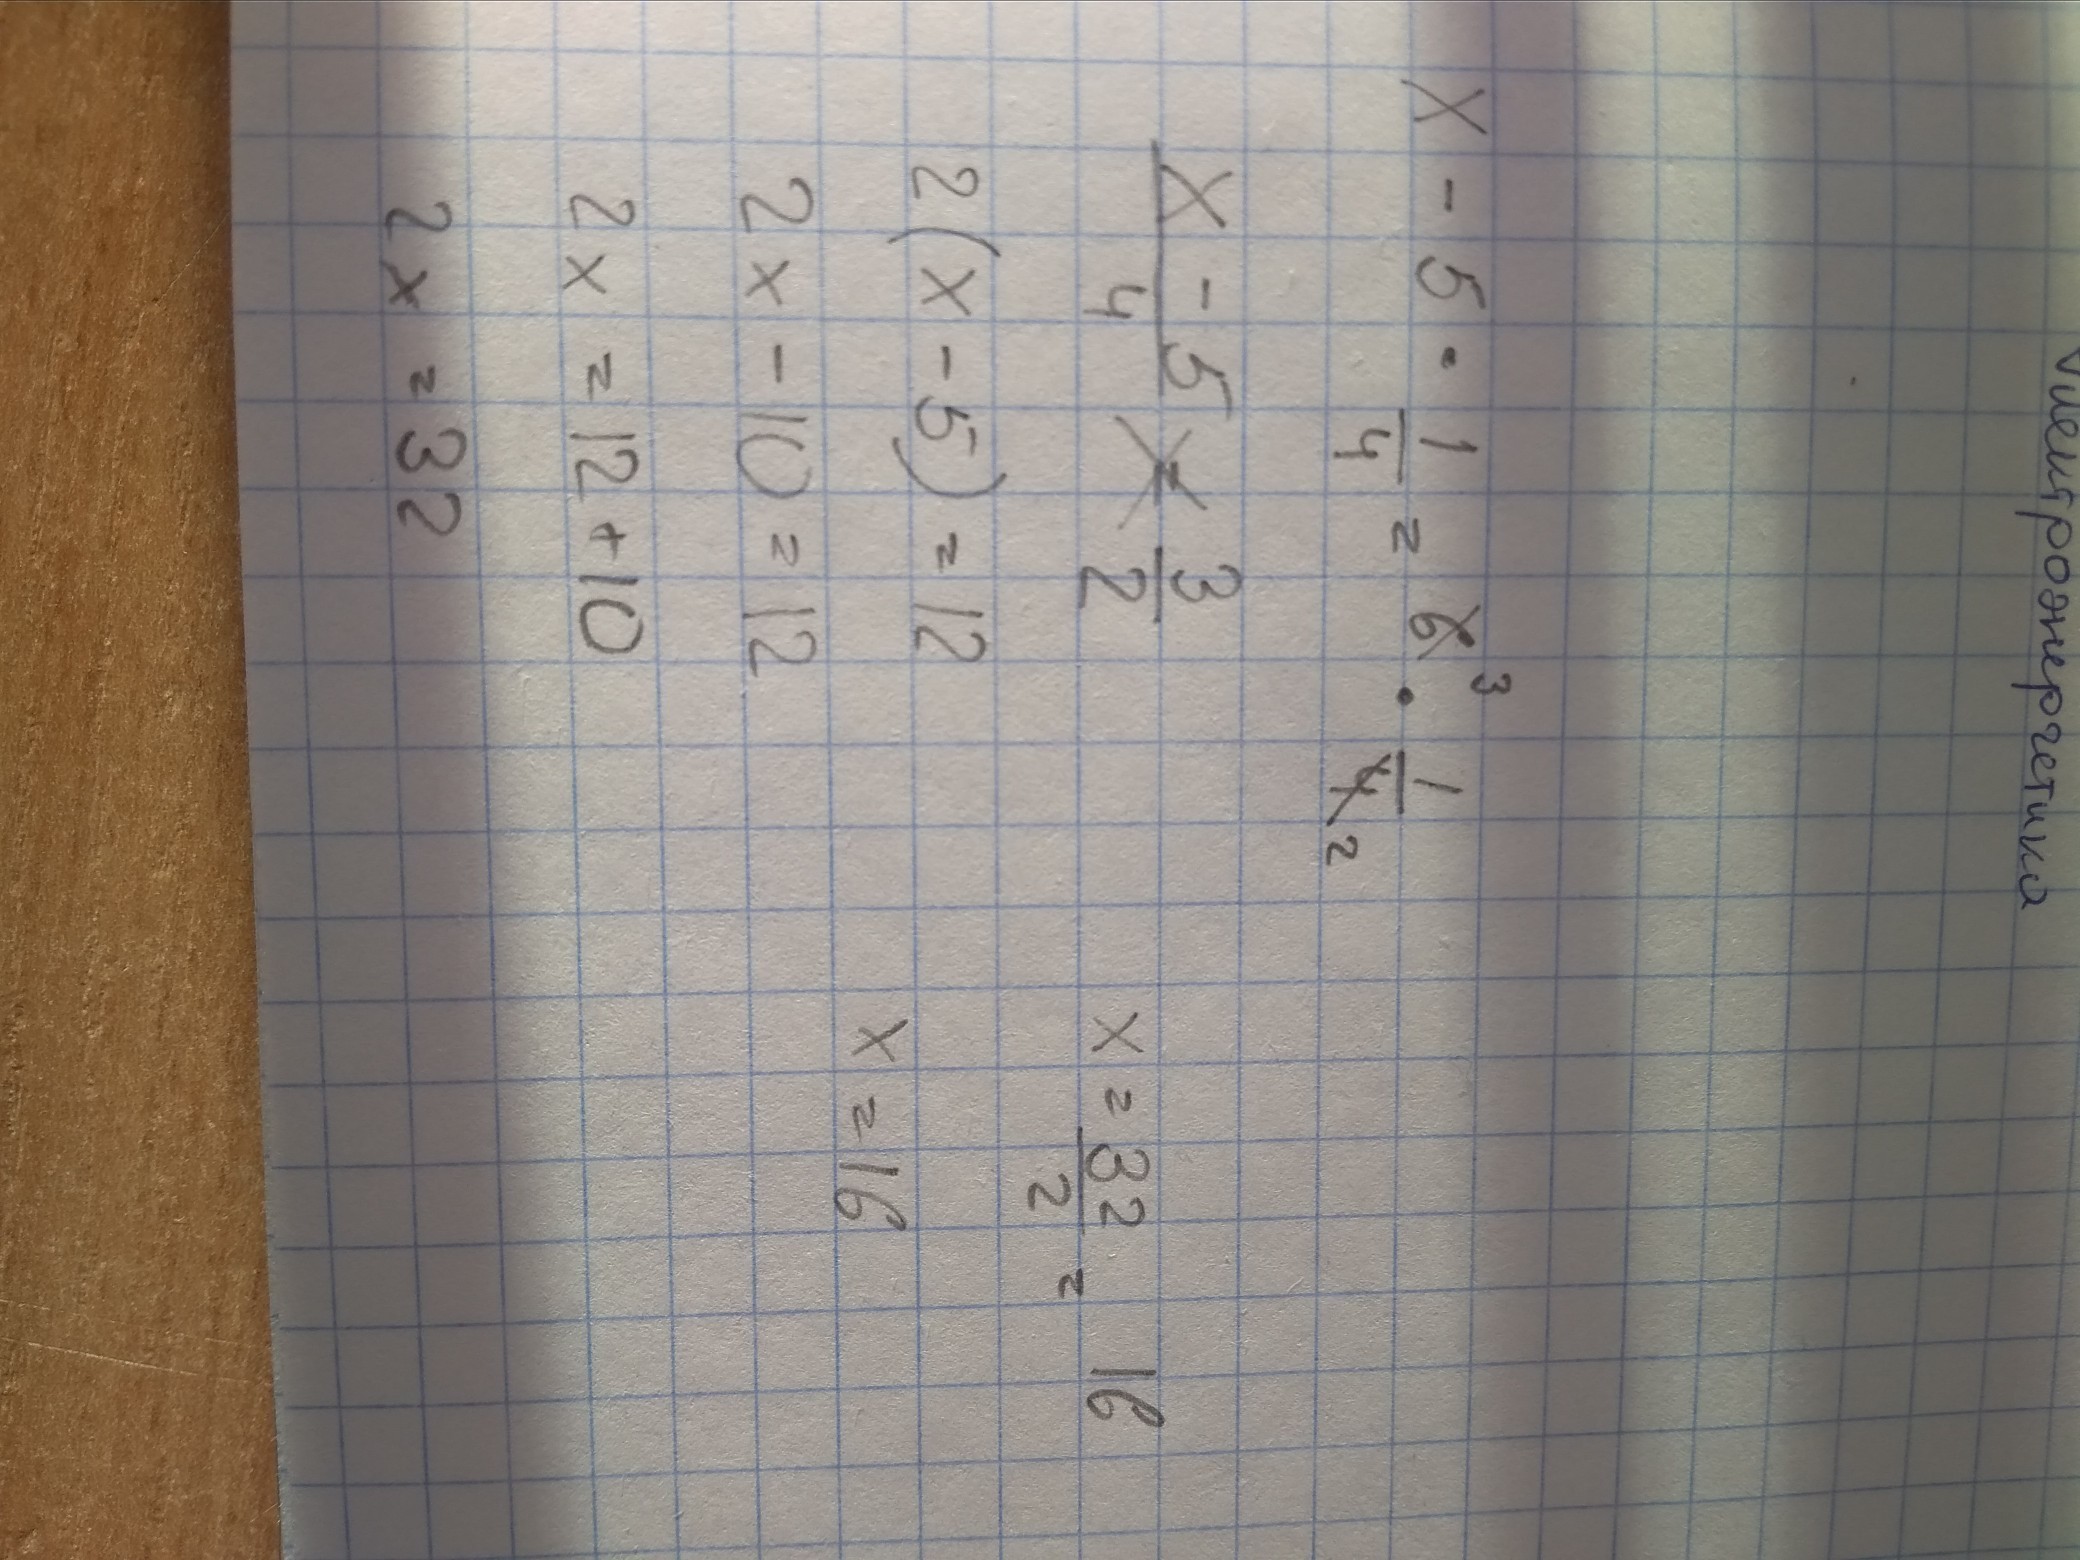 Електроенергетика
x - 5 · 1/4 = 6³ · 1/4₂
x - 5/4 = 3/2
2(x - 5) = 12
2x - 10 = 12
2x = 12 + 10
2x = 32
x = 32/2 = 16
x = 16